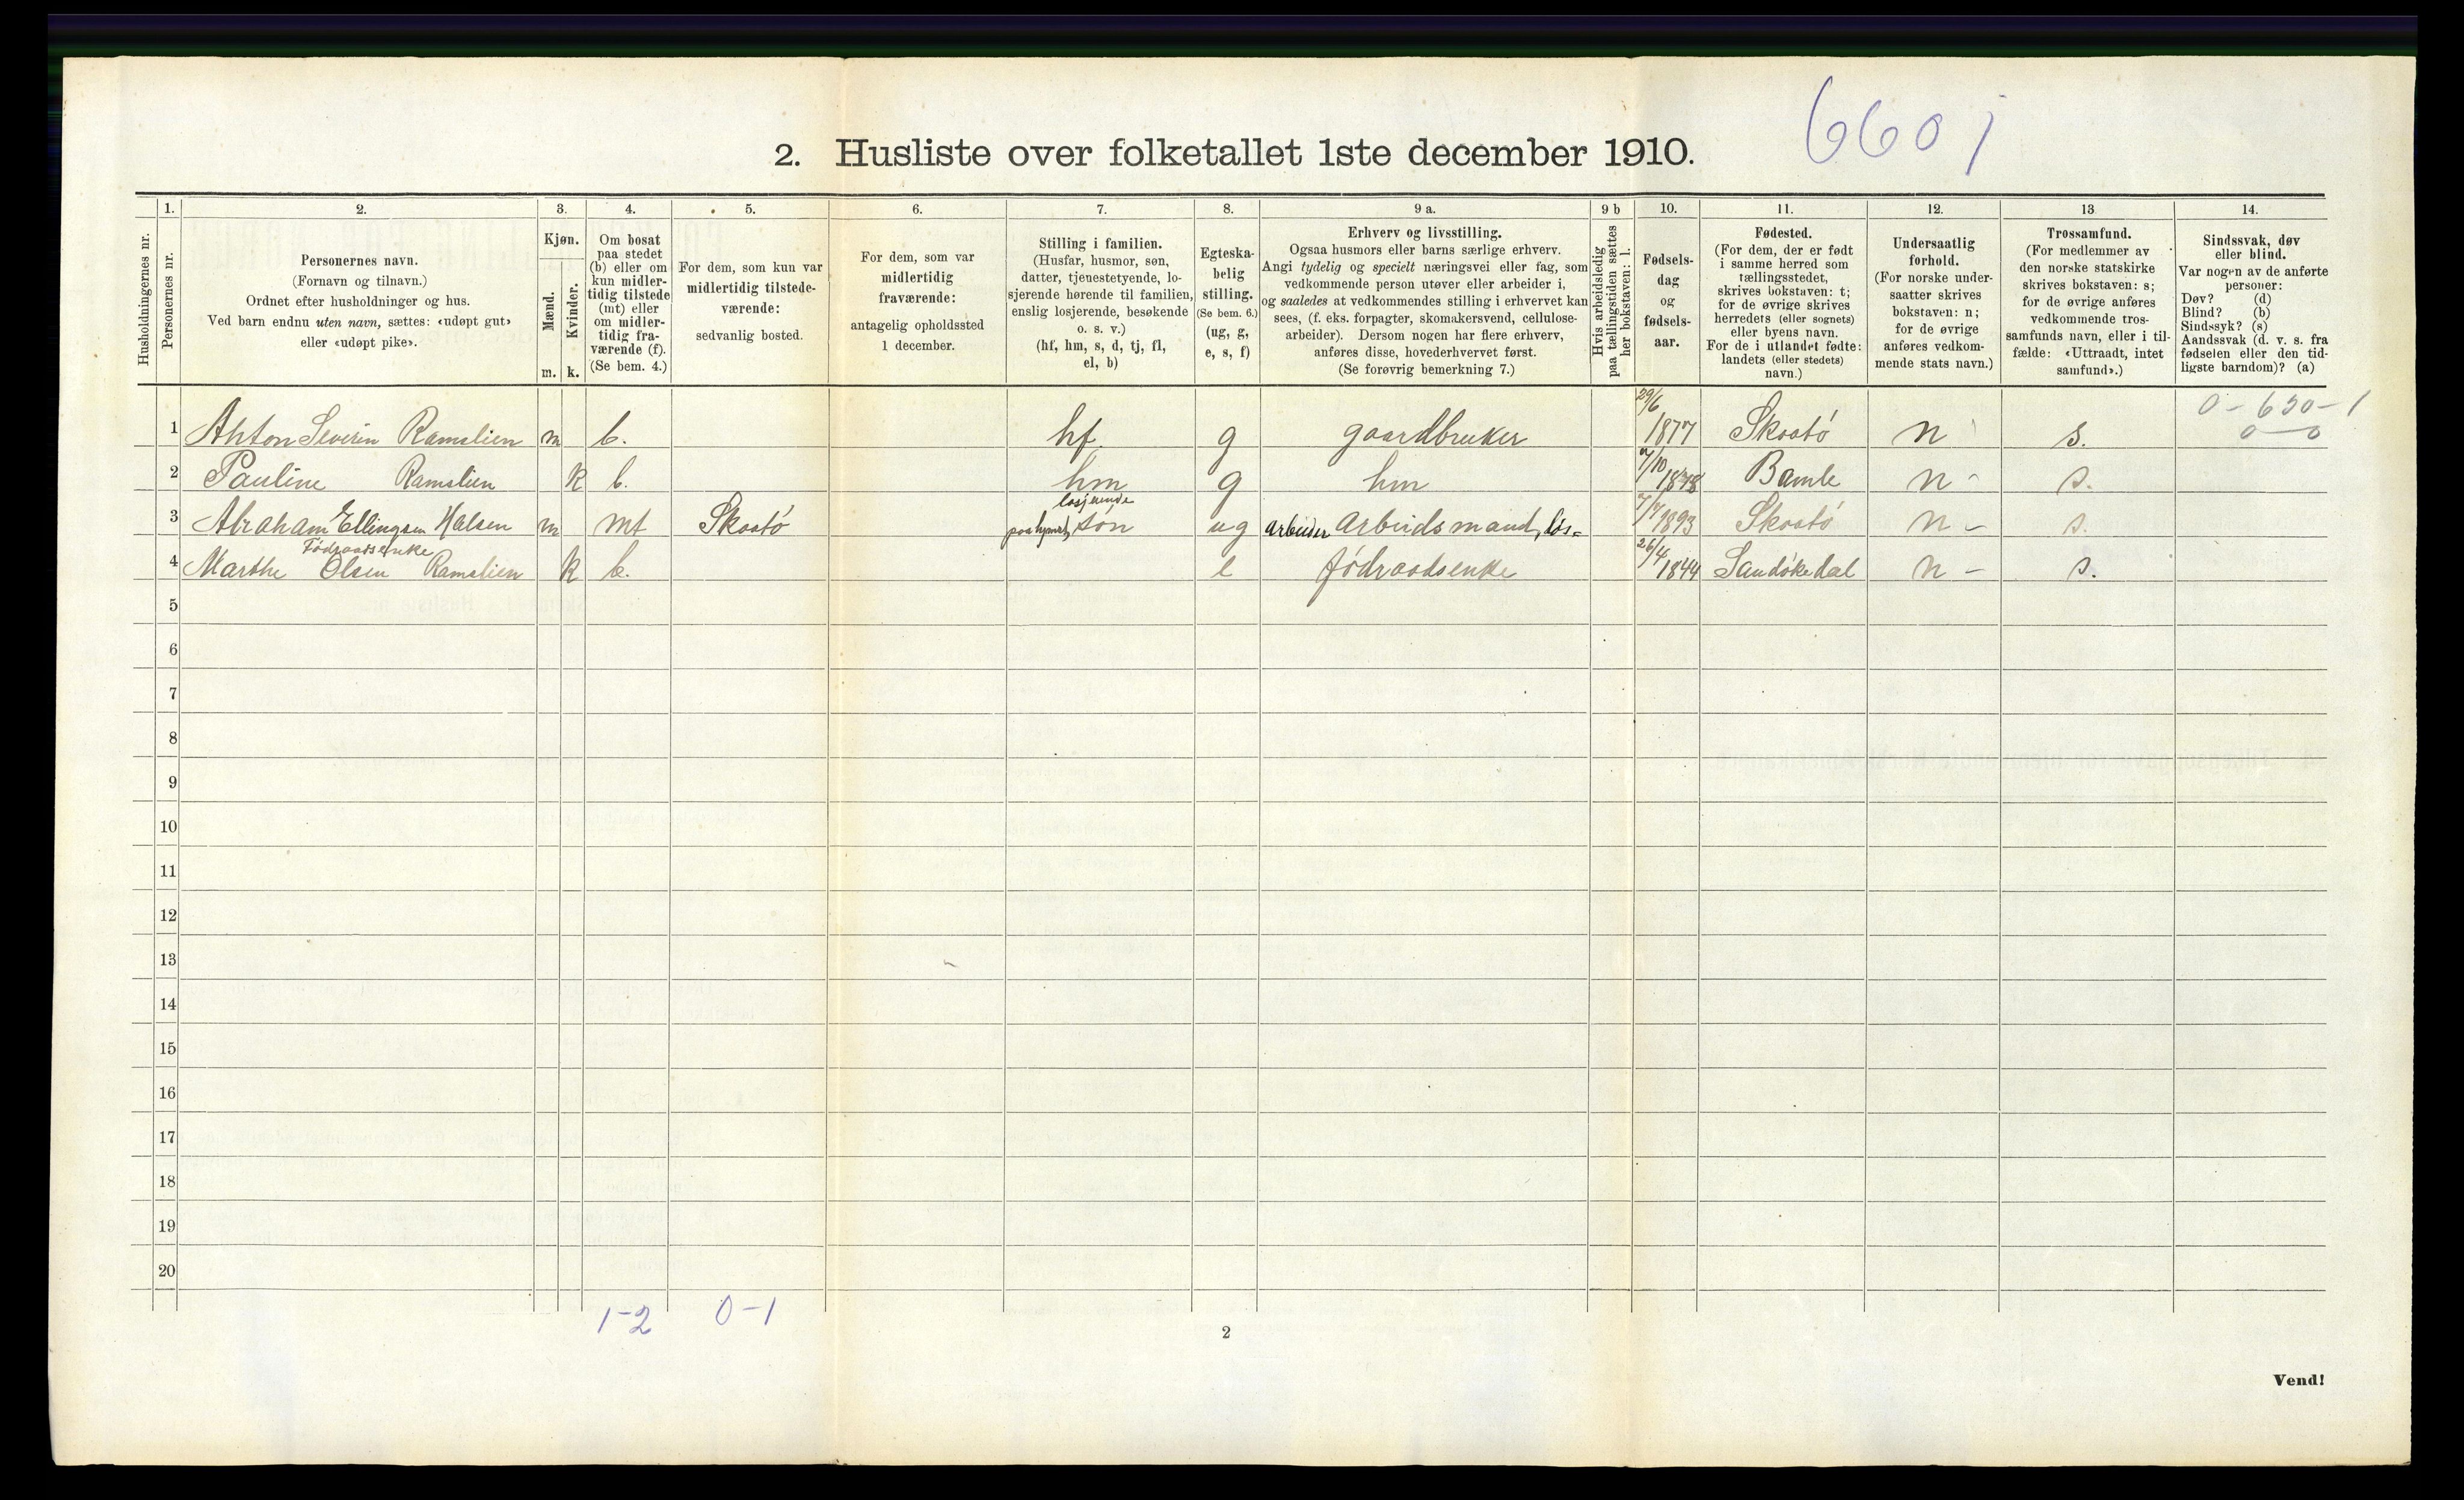 6601
2. Husliste over folketallet 1ste december 1910.
Husholdningernes nr.
1. Personernes nr.
2. Personernes navn.
(Fornavn og tilnavn.)
Ordnet efter husholdninger og hus.
Ved barn endnu uten navn, sættes: «udøpt gut»
eller «udøpt pike».
3. Kjøn.
Mænd. m.
Kvinder. k.
4. Om bosat
paa stedet
(b) eller om
kun midler-
tidig tilstede
(mt) eller
om midler-
tidig fra-
værende (f).
(Se bem. 4.)
5. For dem, som kun var
midlertidig tilstede-
værende:
sedvanlig bosted.
6. For dem, som var
midlertidig
fraværende:
antagelig opholdssted
1 december.
7. Stilling i familien.
(Husfar, husmor, søn,
datter, tjenestetyende, lo-
sjerende hørende til familien,
enslig losjerende, besøkende
o. s. v.)
(hf, hm, s, d, tj, fl,
el, b)
8. Egteska-
belig
stilling.
(Se bem. 6.)
(ug, g,
e, s, f)
9 a. Erhverv og livsstilling.
Ogsaa husmors eller barns særlige erhverv.
Angi tydelig og specielt næringsvei eller fag, som
vedkommende person utøver eller arbeider i,
og saaledes at vedkommendes stilling i erhvervet kan
sees, (f. eks. forpagter, skomakersvend, cellulose-
arbeider). Dersom nogen har flere erhverv,
anføres disse, hovederhvervet først.
(Se forøvrig bemerkning 7.)
9 b Hvis arbeidsledig
paa tællingstiden sættes
her bokstaven: l.
10. Fødsels-
dag
og
fødsels-
aar.
11. Fødested.
(For dem, der er født
i samme herred som
tællingsstedet,
skrives bokstaven: t;
for de øvrige skrives
herredets (eller sognets)
eller byens navn.
For de i utlandet fødte:
landets (eller stedets)
navn.)
12. Undersaatlig
forhold.
(For norske under-
saatter skrives
bokstaven: n;
for de øvrige
anføres vedkom-
mende stats navn.)
13 Trossamfund.
(For medlemmer av
den norske statskirke
skrives bokstaven: s;
for de øvrige anføres
vedkommende tros-
samfunds navn, eller i til-
fælde: «Uttraadt, intet
samfund».)
14. Sindssvak, døv
eller blind.
Var nogen av de anførte
personer:
Døv? (d)
Blind? (b)
Sindssyk? (s)
Aandssvak (d. v. s. fra
fødselen eller den tid-
ligste barndom)? (a)
0 - 650 - 1
0 — 0
1 Anton Severin Ramslien m b. hf g gaardbruker 29/6 1877 Skaatö n s.
2 Pauline Ramslien k b. hm g hm 7/10 1878 Bamle n - s.
losjerende
3 Abraham Ellingsen Halsen m mt Skaatö søn ug arbeider Arbeidsmand, løs= 7/7 1893 Skaatö n - s.
Föderaadsenke
4 Marthe Olsen Ramslien k b. e födraadsenke 26/4 1844 Sandökedal n - s.
5
6
7
8
9
10
11
12
13
14
15
16
17
18
19
20
1-2 0-1
2
Vend!